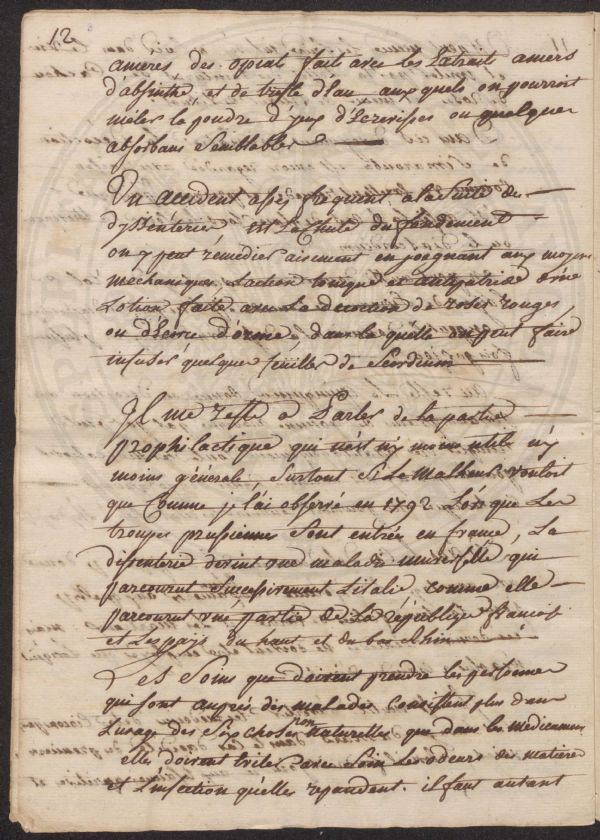 12
ameres des opiat fait avec les Extrait amers
d'absinthe et de trefle d'Eau auxquels on pourroit
mêler la poudre d'yeux d'Ecrevisses ou quelques
absorbans Semblables
Un accident assés frequent a la Suite des
dyssenterie est la chute du fondement
on y peut remedier aisement en joegnant aux moyens
mechaniques L'action tonique et antiputride d'une
Lotion faite avec La decoction de roses rouges,
ou d'Ecorce d'orme, dans la quelle on peut faire
infuser quelque feuilles de Scordium
Il me reste a Parler de la partie
prophilactique qui n'est n'y moins utile n'y
moins générale, Surtout Si Le Malheur vouloit
que Comme je l'ai observé en 1792 Lors que Les
troupes prusiennes Sont entrée en france, La
dissenterie devint une maladie universelle qui
parcourut Successivement L'italie comme elle
parcourut une partie de La république francoise
et Les pays du haut et du bas Rhin
Les Soins que doivent prendre les personnes
qui sont auprès des malades Consistent plus dans
L'usage des Six choses non naturelles que dans les médicamens
elles doivent eviter avec Soin Les odeurs des matieres
et L'infection qu'elles repandent. il faut autant